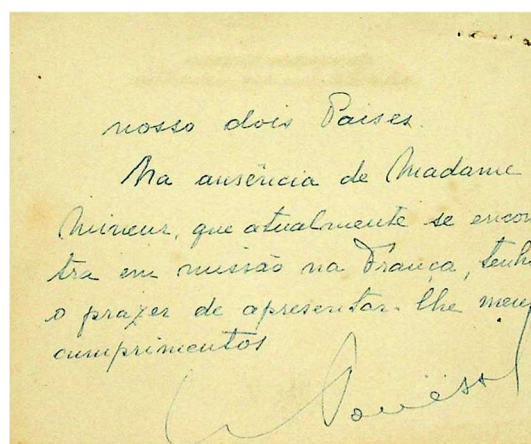 nosso dois Paises.
Na ausência de Madame
Mineur, que atualmente se encon
tra em missão na França, tenho
o prazer de apresentar-lhe meus
cumprimentos